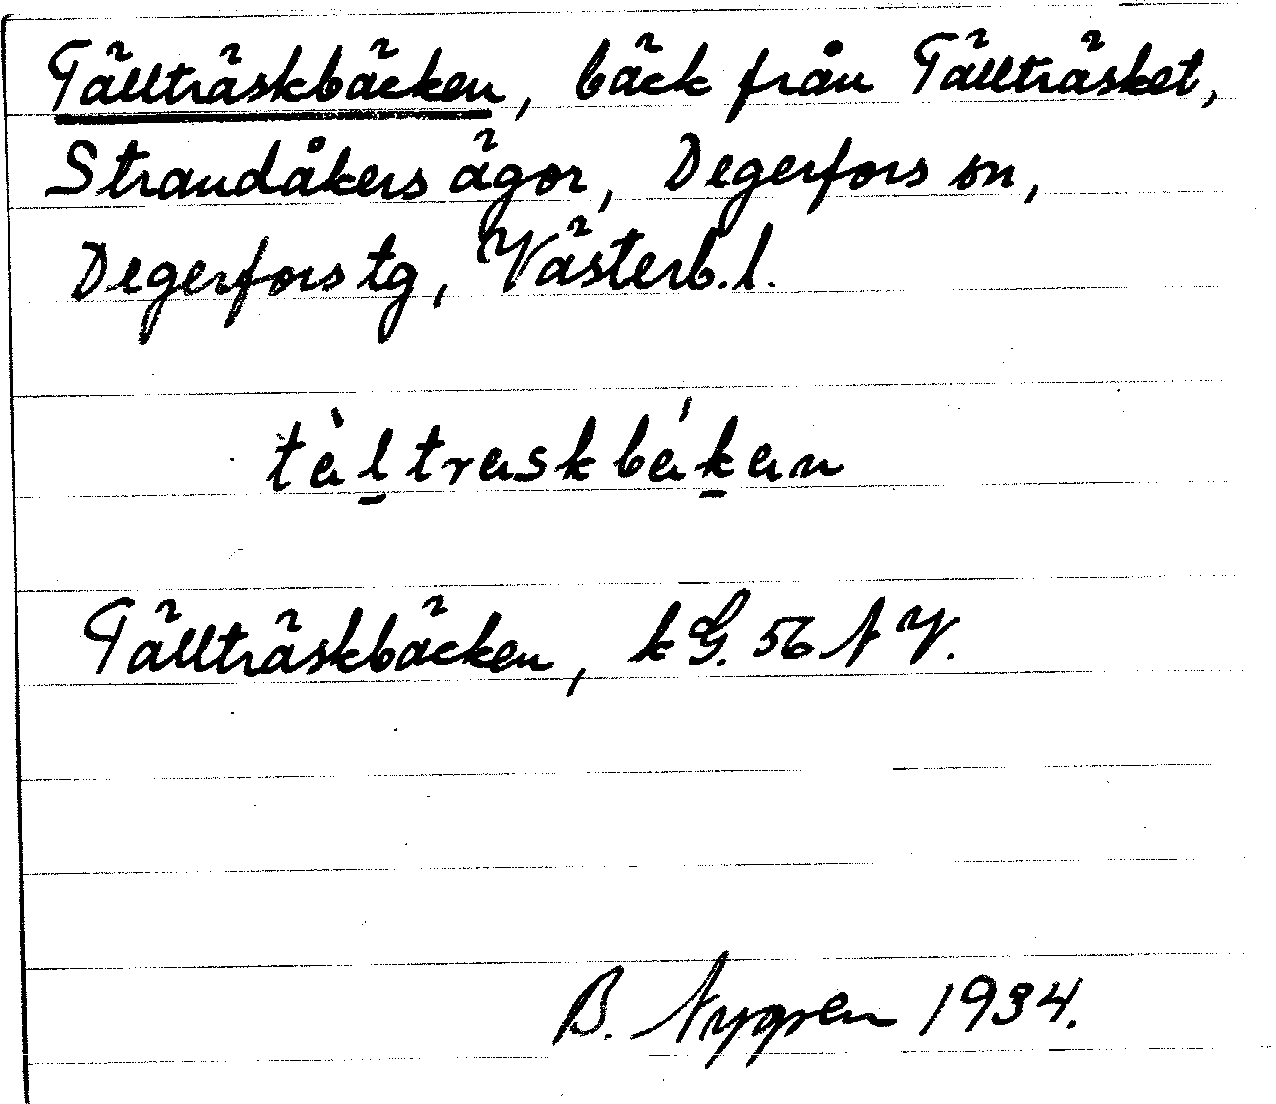 Tällträskbäcken, bäck från Tällträsket,
Strandåkers ägor, Degerfors sn,
Degerfors tg, Västerb. l.
tèl̠traskbék̠an
Tällträskbäcken, k G. 56 NV.
B. Nygren 1934.